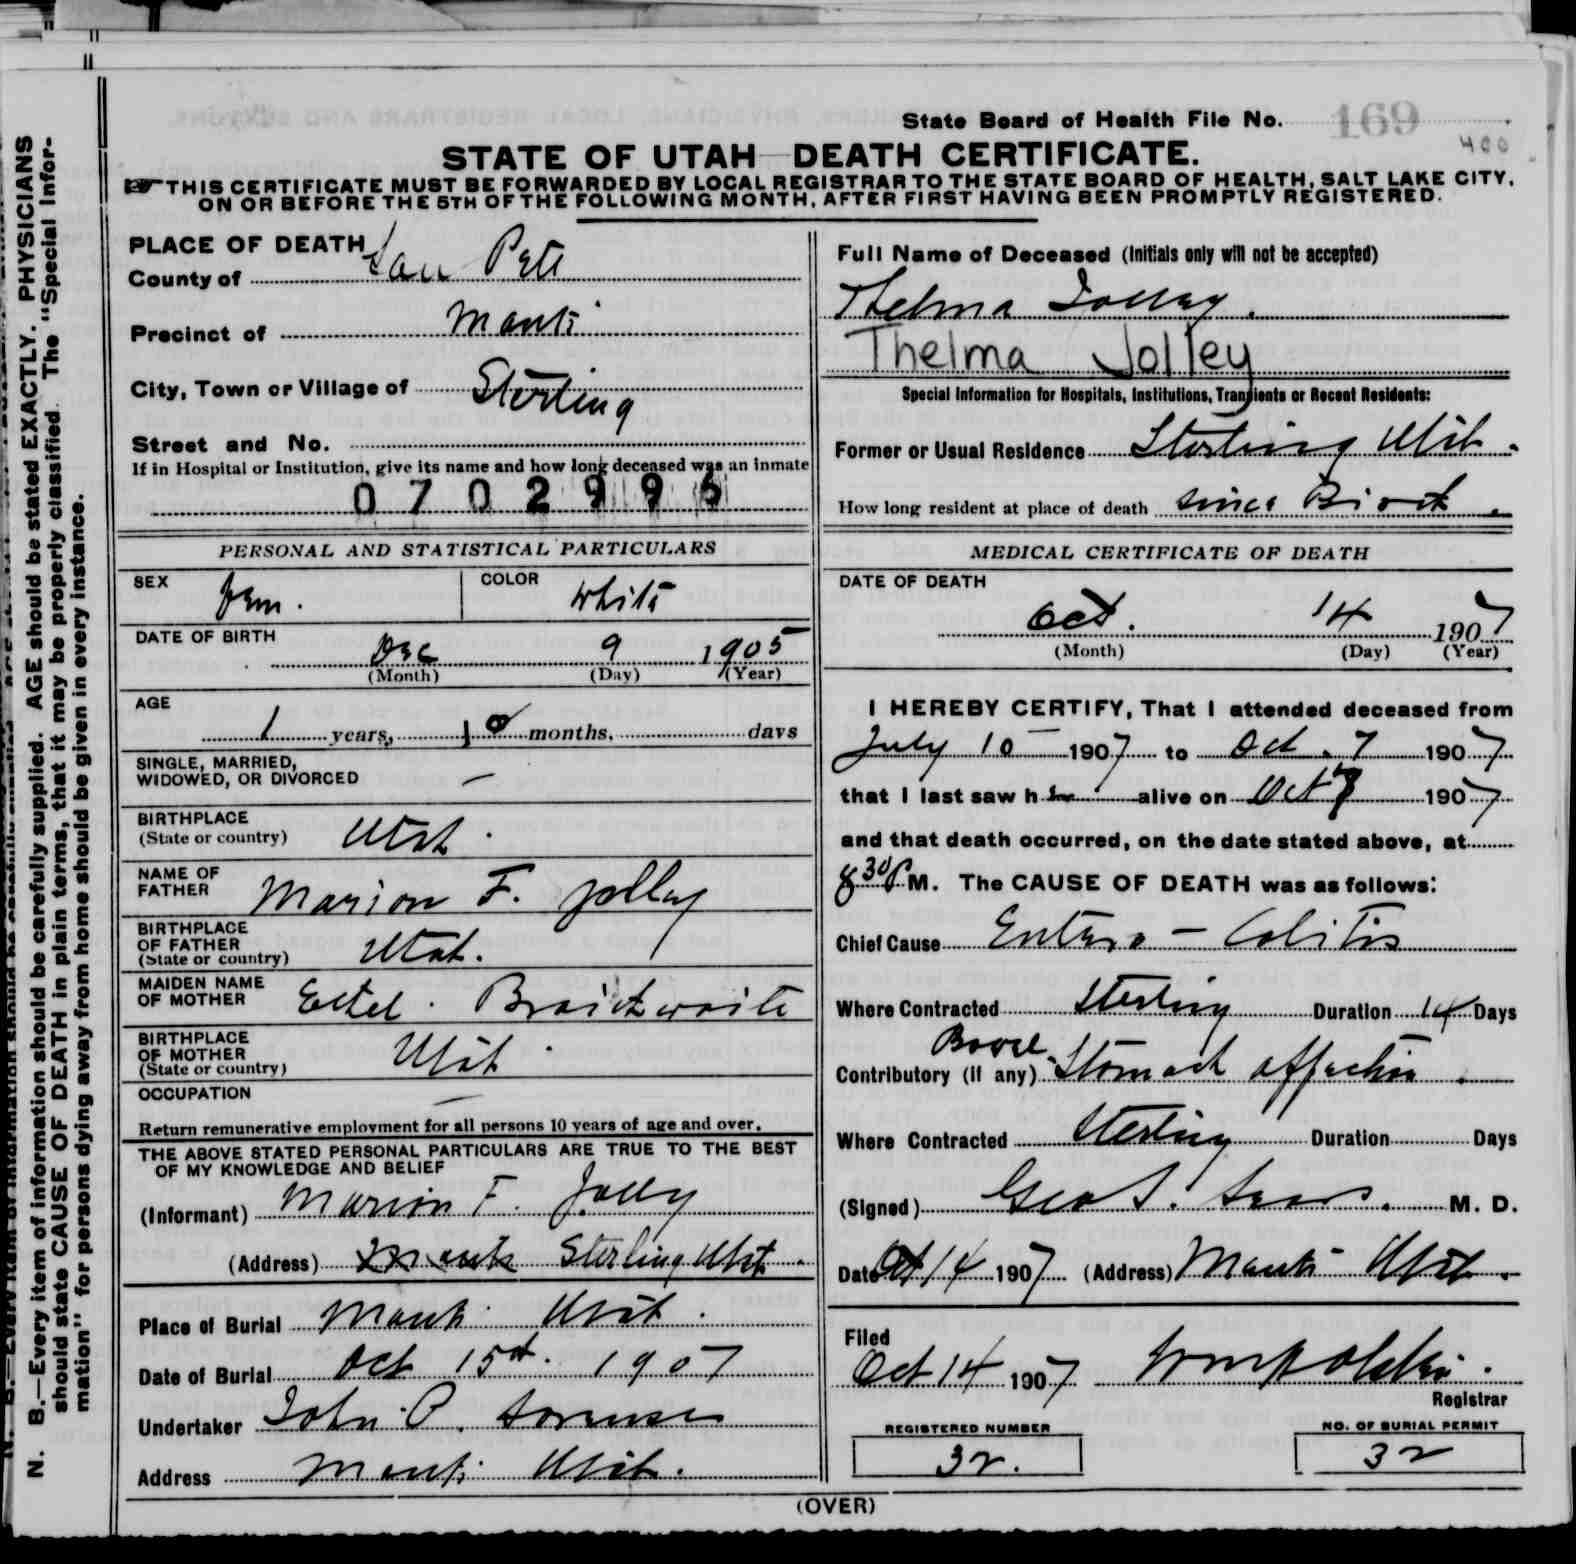 State Board of Health File No. 169
400
STATE OF UTAH—DEATH CERTIFICATE.
THIS CERTIFICATE MUST BE FORWARDED BY LOCAL REGISTRAR TO THE STATE BOARD OF HEALTH, SALT LAKE CITY,
ON OR BEFORE THE 5TH OF THE FOLLOWING MONTH, AFTER FIRST HAVING BEEN PROMPTLY REGISTERED.
PLACE OF DEATH
County of San Pete
Precinct of Manti
City, Town or Village of Sterling
Street and No.
If in Hospital or Institution, give its name and how long deceased was an inmate
0702996
PERSONAL AND STATISTICAL PARTICULARS
SEX Fem. COLOR White
DATE OF BIRTH
Dec 9 1905
(Month) (Day) (Year)
AGE
1 years, 10 months, days
SINGLE, MARRIED,
WIDOWED, OR DIVORCED —
BIRTHPLACE
(State or country) Utah.
NAME OF
FATHER Marion F. Jolley
BIRTHPLACE
OF FATHER
(State or country) Utah.
MAIDEN NAME
OF MOTHER Ethel Braithwaite
BIRTHPLACE
OF MOTHER
(State or country) Utah
OCCUPATION —
Return remunerative employment for all persons 10 years of age and over.
THE ABOVE STATED PERSONAL PARTICULARS ARE TRUE TO THE BEST
OF MY KNOWLEDGE AND BELIEF
(Informant) Marion F. Jolly
(Address) Manti Sterling Utah.
Place of Burial Manti Utah.
Date of Burial Oct 15th. 1907
Undertaker John P. Sorensen
Address Manti Utah.
Full Name of Deceased (Initials only will not be accepted)
Thelma Jolley.
Thelma Jolley
Special Information for Hospitals, Institutions, Transients or Recent Residents:
Former or Usual Residence Sterling Utah.
How long resident at place of death since Birth.
MEDICAL CERTIFICATE OF DEATH
DATE OF DEATH
Oct. 14 1907
(Month) (Day) (Year)
I HEREBY CERTIFY, That I attended deceased from
July 10 1907 to Oct. 7 1907
that I last saw h alive on Oct 7 1907
and that death occurred, on the date stated above, at
8 30 P M. The CAUSE OF DEATH was as follows:
Chief Cause Entero - Colitis
Where Contracted Sterling Duration 14 Days
Bowel
Contributory (if any) Stomach affection.
Where Contracted Sterling Duration Days
(Signed) Geo M. D.
Date Oct 14 1907 (Address) Manti Utah.
Filed
Oct 14 1907
Registrar
REGISTERED NUMBER
32.
NO. OF BURIAL PERMIT
32
(OVER)
N. B.—Every item of information should be carefully supplied. AGE should be stated EXACTLY. PHYSICIANS
should state CAUSE OF DEATH in plain terms, that it may be properly classified. The "Special Infor-
mation" for persons dying away from home should be given in every instance.